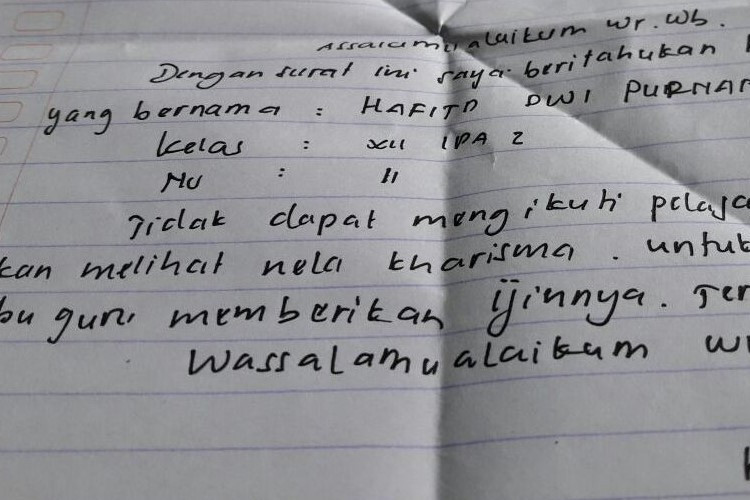 Assalamualaikum wr. wb.
Dengan surat ini saya beritahukan
yang bernama : HAFITD DWI PURNA
Kelas : XII IPA 2
NU : 11
Tidak dapat mengikuti pelaja
kan melihat nela kharisma . untuk
bu guru memberikan ijinnya. Ter
Wassalamualaikum wr